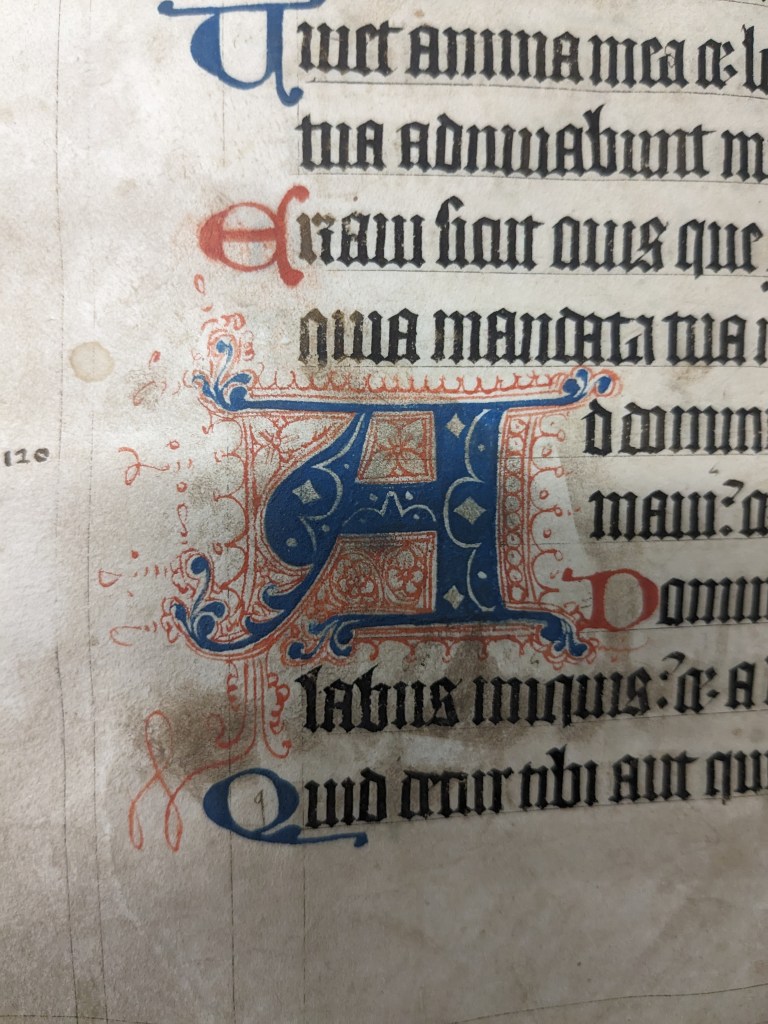 Uiuet anima mea et
tua adiuuabunt m
Erraui sicut ouis que
quia mandata tua
120
Ad domin
maui: et
Domin
labiis iniquis: et a
Quid detur tibi aut qui